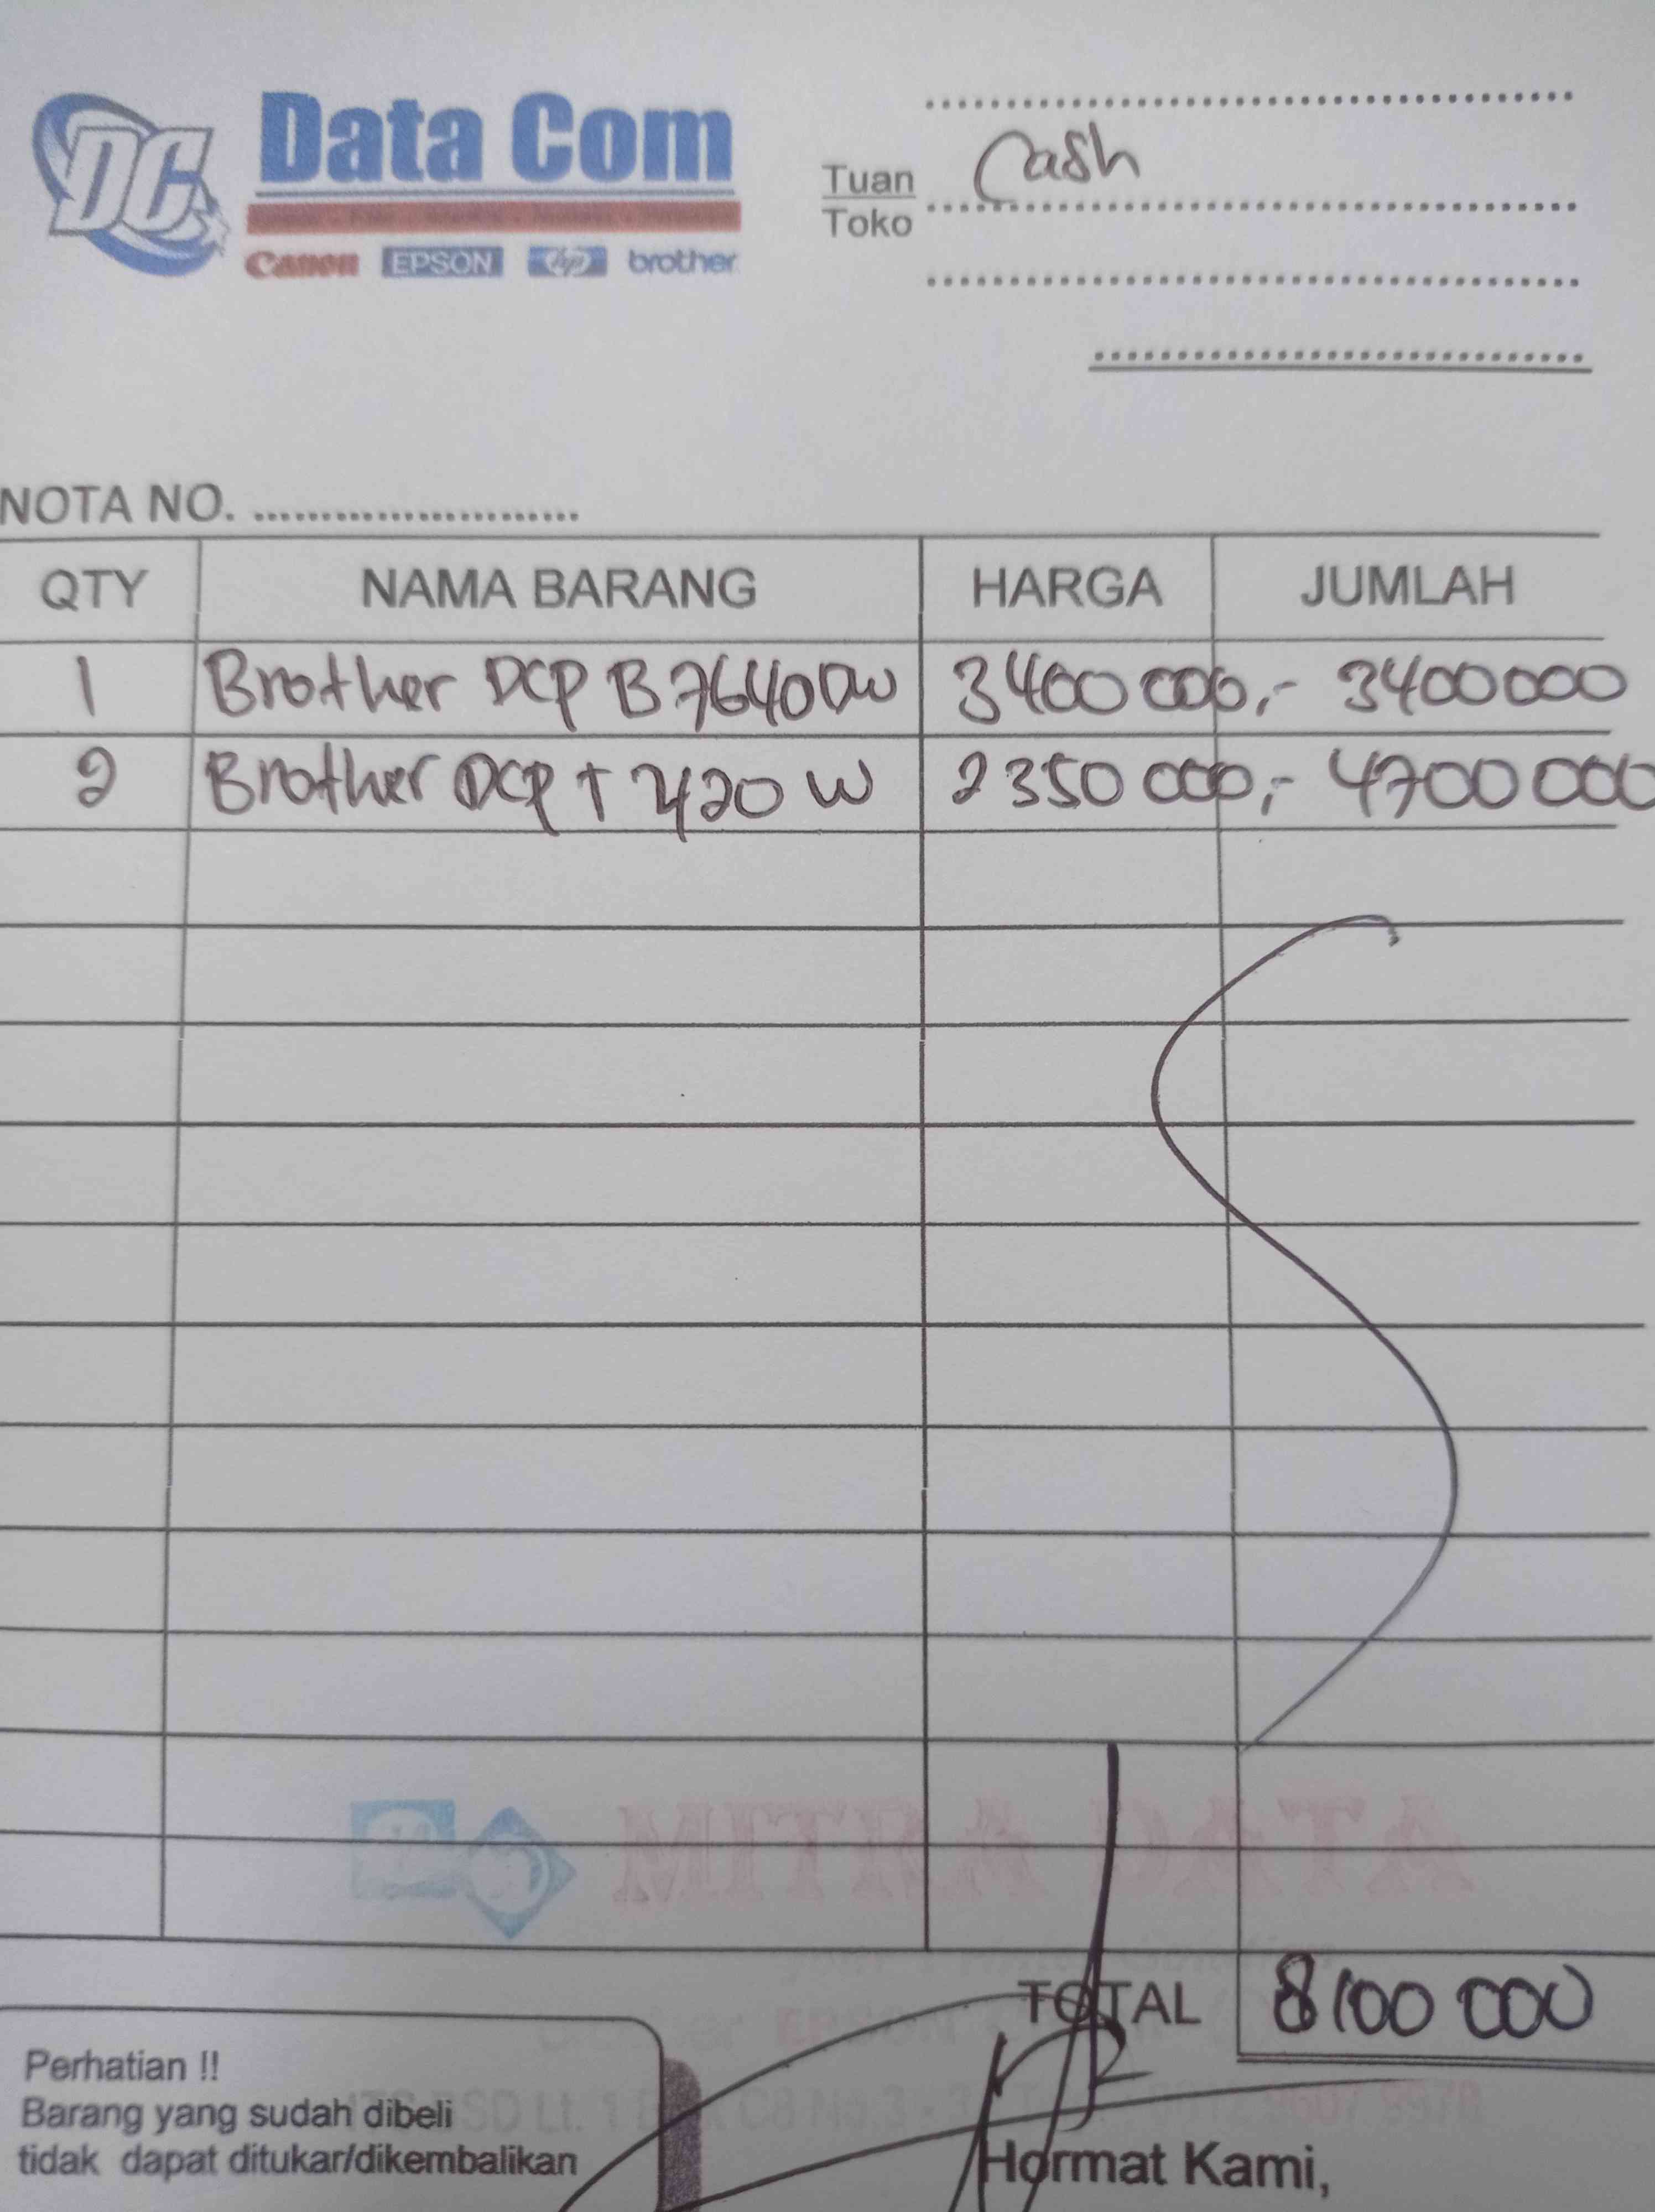 DC
Data Com
Canon EPSON hp brother
Tuan Cash
Toko
NOTA NO. ........................
QTY NAMA BARANG HARGA JUMLAH
1 Brother DCP B7640DW 3400 000,- 3400000
2 Brother DCP T 420 W 2350 000,- 4700 000
MITRA DATA
TOTAL 8100 000
Perhatian !!
Barang yang sudah dibeli
tidak dapat ditukar/dikembalikan
Hormat Kami,